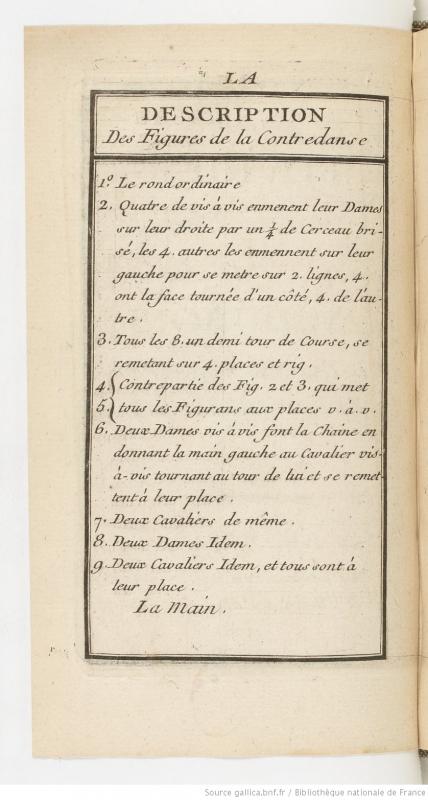 LA
DESCRIPTION
Des Figures de la Contredanse
1º. Le rond ordinaire
2. Quatre de vis à vis enmenent leur Dames
sur leur droite par un 1/4 de Cerceau bri-
sé, les 4. autres les enmennent sur leur
gauche pour se metre sur 2. lignes, 4.
ont la face tournée d'un côté, 4. de l'au-
tre.
3. Tous les 8. un demi tour de Course, se
remetant sur 4. places et rig.
4. Contrepartie des Fig. 2 et 3. qui met
5. tous les Figurans aux places v. à. v.
6. Deux Dames vis à vis font la Chaine en
donnant la main gauche au Cavalier vis-
à-vis tournant au tour de lui et se remet-
tent à leur place.
7. Deux Cavaliers de même.
8. Deux Dames Idem.
9. Deux Cavaliers Idem, et tous sont à
leur place.
La Main.
Source gallica.bnf.fr / Bibliothèque nationale de France